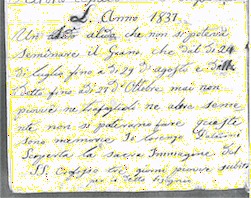 L'Anno 1837
Un che non si poteva
Seminare il Grano, che dal di 24
di luglio fino a di 29 di agosto e
Detto fino a di 27 d'Ottobre mai non
piovve ne trafoglioli ne altre seme
nte non si poterono fare queste
sono memorie Io Lorenzo
Scoperta la sacra Immagine del
SS. tre giorni piovve subito
per